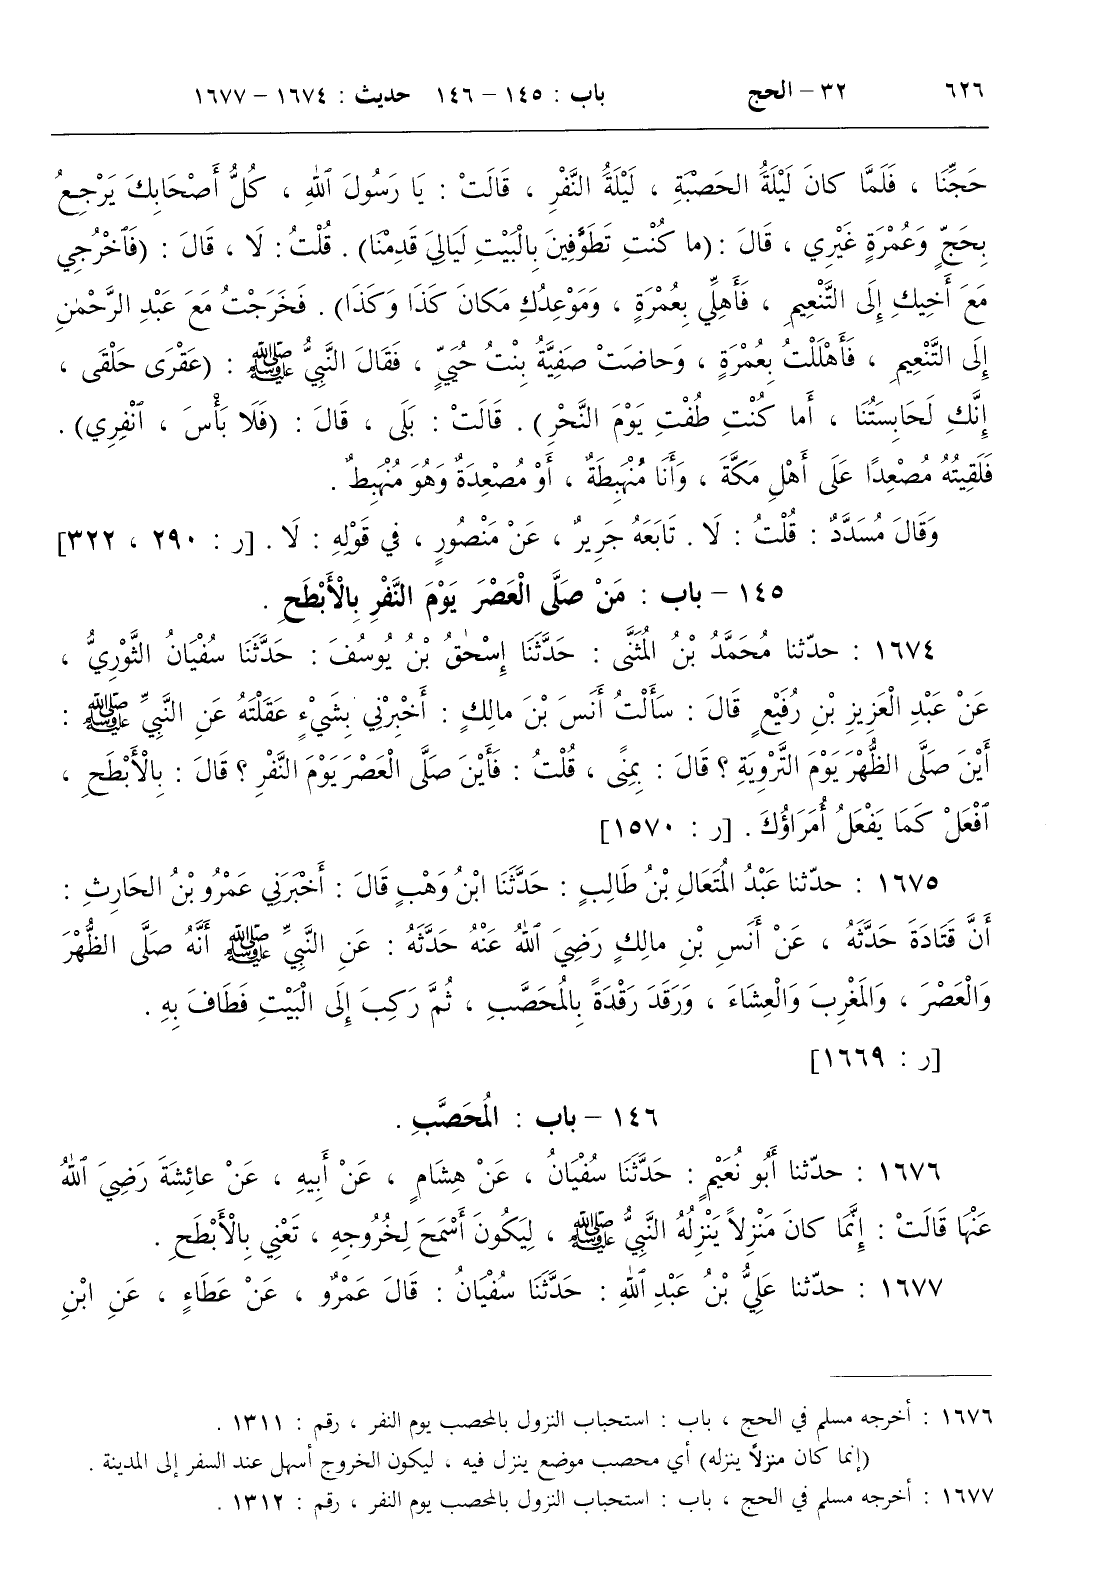 ٦٢٦ ٣٢ – الحج باب : ١٤٥ – ١٤٦ حديث : ١٦٧٤ – ١٦٧٧
حَجِّنَا ، فَلَمَّا كانَ لَيْلَةُ الحَصْبَةِ ، لَيْلَةُ النَّفْرِ ، قَالَتْ : يَا رَسُولَ ٱللهِ ، كُلُّ أَصْحَابِكَ يَرْجِعُ
بِحَجٍّ وَعُمْرَةٍ غَيْرِي ، قَالَ : (ما كُنْتِ تَطَوَّفِينَ بِالْبَيْتِ لَيَالِيَ قَدِمْنَا) . قُلْتُ : لَا ، قَالَ : (فَٱخْرُجِي
مَعَ أَخِيكِ إِلَى التَّنْعِيمِ ، فَأَهِلِّي بِعُمْرَةٍ ، وَمَوْعِدُكِ مَكانَ كَذَا وَكَذَا) . فَخَرَجْتُ مَعَ عَبْدِ الرَّحْمٰنِ
إِلَى التَّنْعِيمِ ، فَأَهْلَلْتُ بِعُمْرَةٍ ، وَحاضَتْ صَفِيَّةُ بِنْتُ حُيَيٍّ ، فَقَالَ النَّبِيُّ ﷺ : (عَقْرَى حَلْقَى ،
إِنَّكِ لَحَابِسَتُنَا ، أَما كُنْتِ طُفْتِ يَوْمَ النَّحْرِ) . قَالَتْ : بَلَى ، قَالَ : (فَلَا بَأْسَ ، ٱنْفِرِي) .
فَلَقِيتُهُ مُصْعِدًا عَلَى أَهْلِ مَكَّةَ ، وَأَنَا مُنْهَبِطَةٌ ، أَوْ مُصْعِدَةٌ وَهُوَ مُنْهَبِطٌ .
وَقَالَ مُسَدَّدٌ : قُلْتُ : لَا . تَابَعَهُ جَرِيرٌ ، عَنْ مَنْصُورٍ ، في قَوْلِهِ : لَا . [ر : ٢٩٠ ، ٣٢٢]
١٤٥ – باب : مَنْ صَلَّى الْعَصْرَ يَوْمَ النَّفْرِ بِالْأَبْطَحِ .
١٦٧٤ : حدّثنا مُحَمَّدُ بْنُ المُثَنَّى : حَدَّثَنَا إِسْحٰقُ بْنُ يُوسُفَ : حَدَّثَنَا سُفْيَانُ الثَّوْرِيُّ ،
عَنْ عَبْدِ الْعَزِيزِ بْنِ رُفَيْعٍ قَالَ : سَأَلْتُ أَنَسَ بْنَ مالِكٍ : أَخْبِرْنِي بِشَيْءٍ عَقَلْتَهُ عَنِ النَّبِيِّ ﷺ :
أَيْنَ صَلَّى الظُّهْرَ يَوْمَ التَّرْوِيَةِ ؟ قَالَ : بِمِنًى ، قُلْتُ : فَأَيْنَ صَلَّى الْعَصْرَ يَوْمَ النَّفْرِ ؟ قَالَ : بِالْأَبْطَحِ ،
ٱفْعَلْ كَمَا يَفْعَلُ أُمَرَاؤُكَ . [ر : ١٥٧٠]
١٦٧٥ : حدّثنا عَبْدُ المُتَعَالِ بْنُ طَالِبٍ : حَدَّثَنَا ابْنُ وَهْبٍ قَالَ : أَخْبَرَنِي عَمْرُو بْنُ الحَارِثِ :
أَنَّ قَتَادَةَ حَدَّثَهُ ، عَنْ أَنَسِ بْنِ مالِكٍ رَضِيَ ٱللهُ عَنْهُ حَدَّثَهُ : عَنِ النَّبِيِّ ﷺ أَنَّهُ صَلَّى الظُّهْرَ
وَالْعَصْرَ ، وَالمَغْرِبَ وَالْعِشَاءَ ، وَرَقَدَ رَقْدَةً بِالمُحَصَّبِ ، ثُمَّ رَكِبَ إِلَى الْبَيْتِ فَطَافَ بِهِ .
[ر : ١٦٦٩]
١٤٦ – باب : المُحَصَّبِ .
١٦٧٦ : حدّثنا أَبُو نُعَيْمٍ : حَدَّثَنَا سُفْيَانُ ، عَنْ هِشَامٍ ، عَنْ أَبِيهِ ، عَنْ عائِشَةَ رَضِيَ ٱللهُ
عَنْهَا قَالَتْ : إِنَّمَا كانَ مَنْزِلاً يَنْزِلُهُ النَّبِيُّ ﷺ ، لِيَكُونَ أَسْمَحَ لِخُرُوجِهِ ، تَعْنِي بِالْأَبْطَحِ .
١٦٧٧ : حدّثنا عَلِيُّ بْنُ عَبْدِ ٱللهِ : حَدَّثَنَا سُفْيَانُ : قَالَ عَمْرٌو ، عَنْ عَطَاءٍ ، عَنِ ابْنِ
١٦٧٦ : أخرجه مسلم في الحج ، باب : استحباب النزول بالمحصب يوم النفر ، رقم : ١٣١١ .
(إنما كان منزلاً ينزله) أي محصب موضع ينزل فيه ، ليكون الخروج أسهل عند السفر إلى المدينة .
١٦٧٧ : أخرجه مسلم في الحج ، باب : استحباب النزول بالمحصب يوم النفر ، رقم : ١٣١٢ .